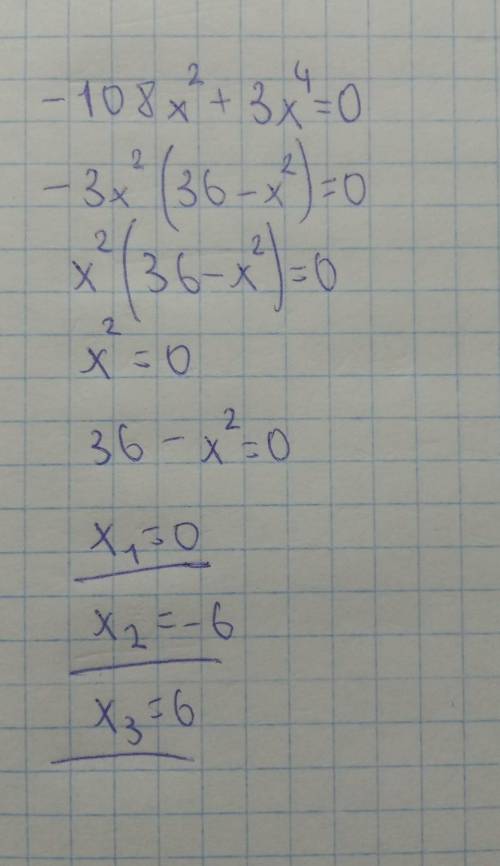 -108x² + 3x⁴ = 0
-3x² (36 - x²) = 0
x² (36 - x²) = 0
x² = 0
36 - x² = 0
x₁ = 0
x₂ = -6
x₃ = 6